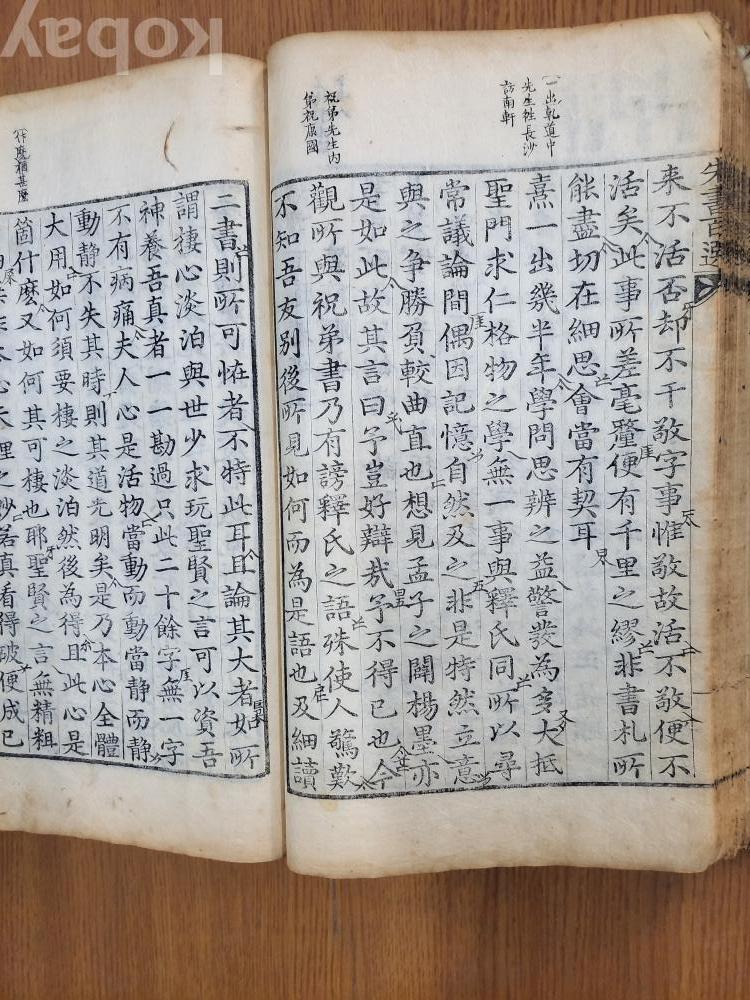 Kobay
朱書百選
一出乾道中
先生往長沙
訪南軒
祝弟先生内
弟祝康國
来不活否却不干敬字事惟敬故活不敬便不
活矣此事所差毫釐便有千里之繆非書札所
能盡切在細思會當有契耳
熹一出幾半年學問思辨之益警發為多大抵
聖門求仁格物之學無一事與釋氏同所以尋
常議論間偶因記憶自然及之非是特然立意
與之争勝負較曲直也想見孟子之闢楊墨亦
是如此故其言曰予豈好辯㢤予不得已也今
觀所與祝弟書乃有謗釋氏之語殊使人驚歎
不知吾友別後所見如何而為是語也及細讀
什麽猶甚麽
二書則所可恠者不特此耳且論其大者如所
謂棲心淡泊與世少求玩聖賢之言可以資吾
神養吾真者一一勘過只此二十餘字無一字
不有病痛夫人心是活物當動而動當静而静
動静不失其時則其道光明矣是乃本心全體
大用如何須要棲之淡泊然後為得且此心是
箇什麽又如何其可棲也耶聖賢之言無精粗
本心天理之妙若真看得破便成已